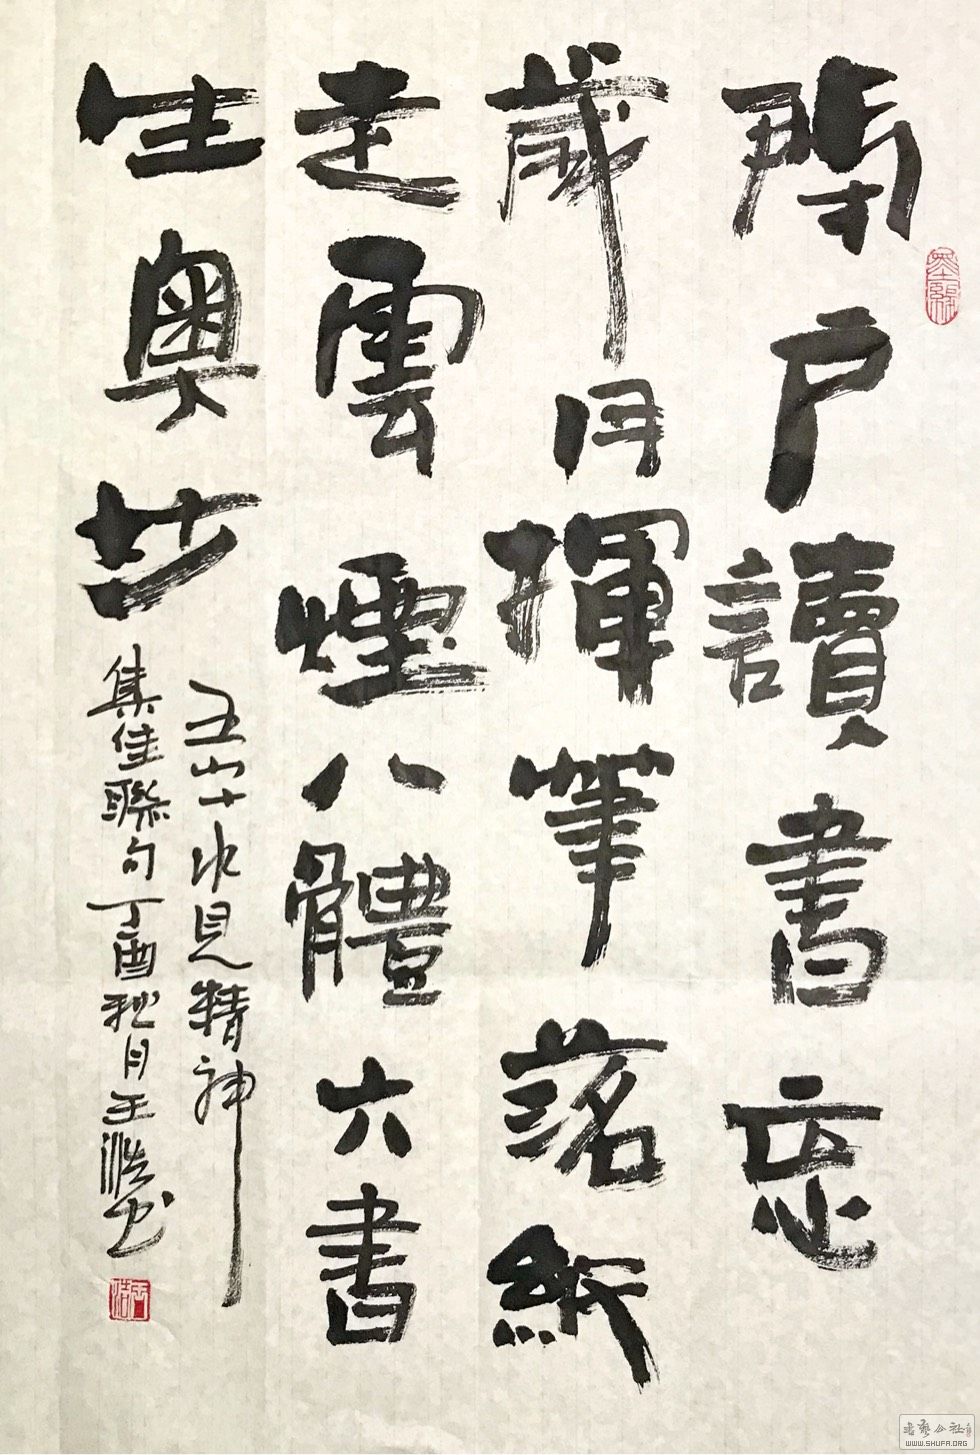 閉户讀書忘
歲月揮筆落紙
走雲煙八體六書
生奥妙
五山十水見精神
集佳聯句丁酉秋月王浩書
墨緣
王浩
書藝公社
WWW.SHUFA.ORG